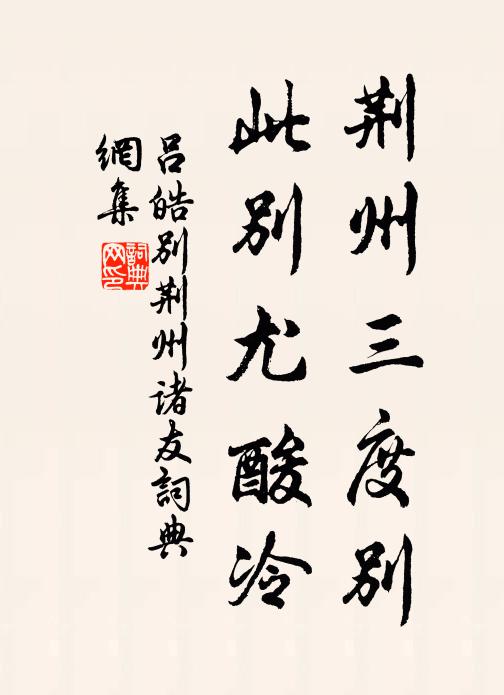 荆州三度别
此别尤酸冷
吕皓别荆州诸友詞典
網集
詞典
网印